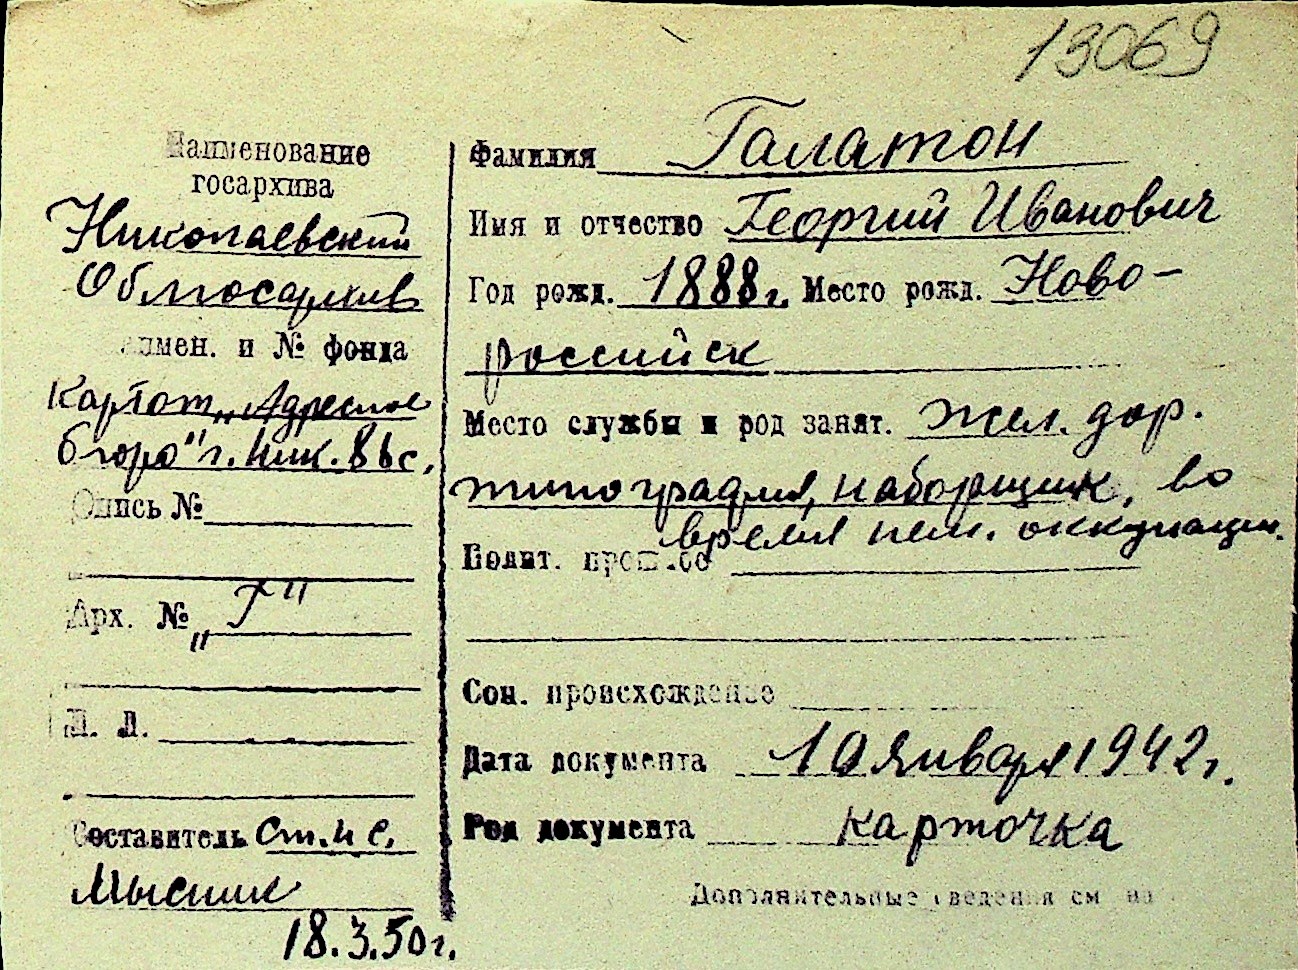 13069
Наименование
госархива
Николаевский
Облгосархив
наимен. и № фонда
Картот. „Адресное
бюро" г. Ник.
Опись №
Арх. № „Г"
Л. Л.
Составитель ст. н с.
Мысник
18.3.50г.
Фамилия Галатон
Имя и отчество Георгий Иванович
Год рожд. 1888г. Место рожд. Ново-
российск
Место службы и род занят. жел. дор.
типография, наборщик, во
время нем. оккупации.
Полит. прошлое
Соц. происхождение
Дата документа 10 января 1942г.
Род документа карточка
Дополнительные сведения см на